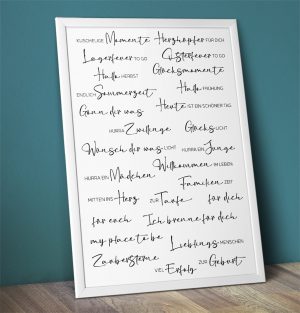 KUSCHELIGE Momente Herzhüpfer FÜR DICH
Lagerfever TO GO Osterfever TO GO
Hallo HERBST Glücksmomente
ENDLICH Sommerzeit Hallo FRÜHLING
Gönn dir was Heute IST EIN SCHÖNER TAG
HURRA Zwillinge Glücks LICHT
Wünsch dir was LICHT HURRA EIN Junge
HURRA EIN Mädchen Willkommen IM LEBEN
MITTEN INS Herz ZUR Taufe Familien ZEIT
für dich
für euch Ich brenne für dich
my place to be Lieblings MENSCHEN
Zaubersterne ZUR Geburt
VIEL Erfolg